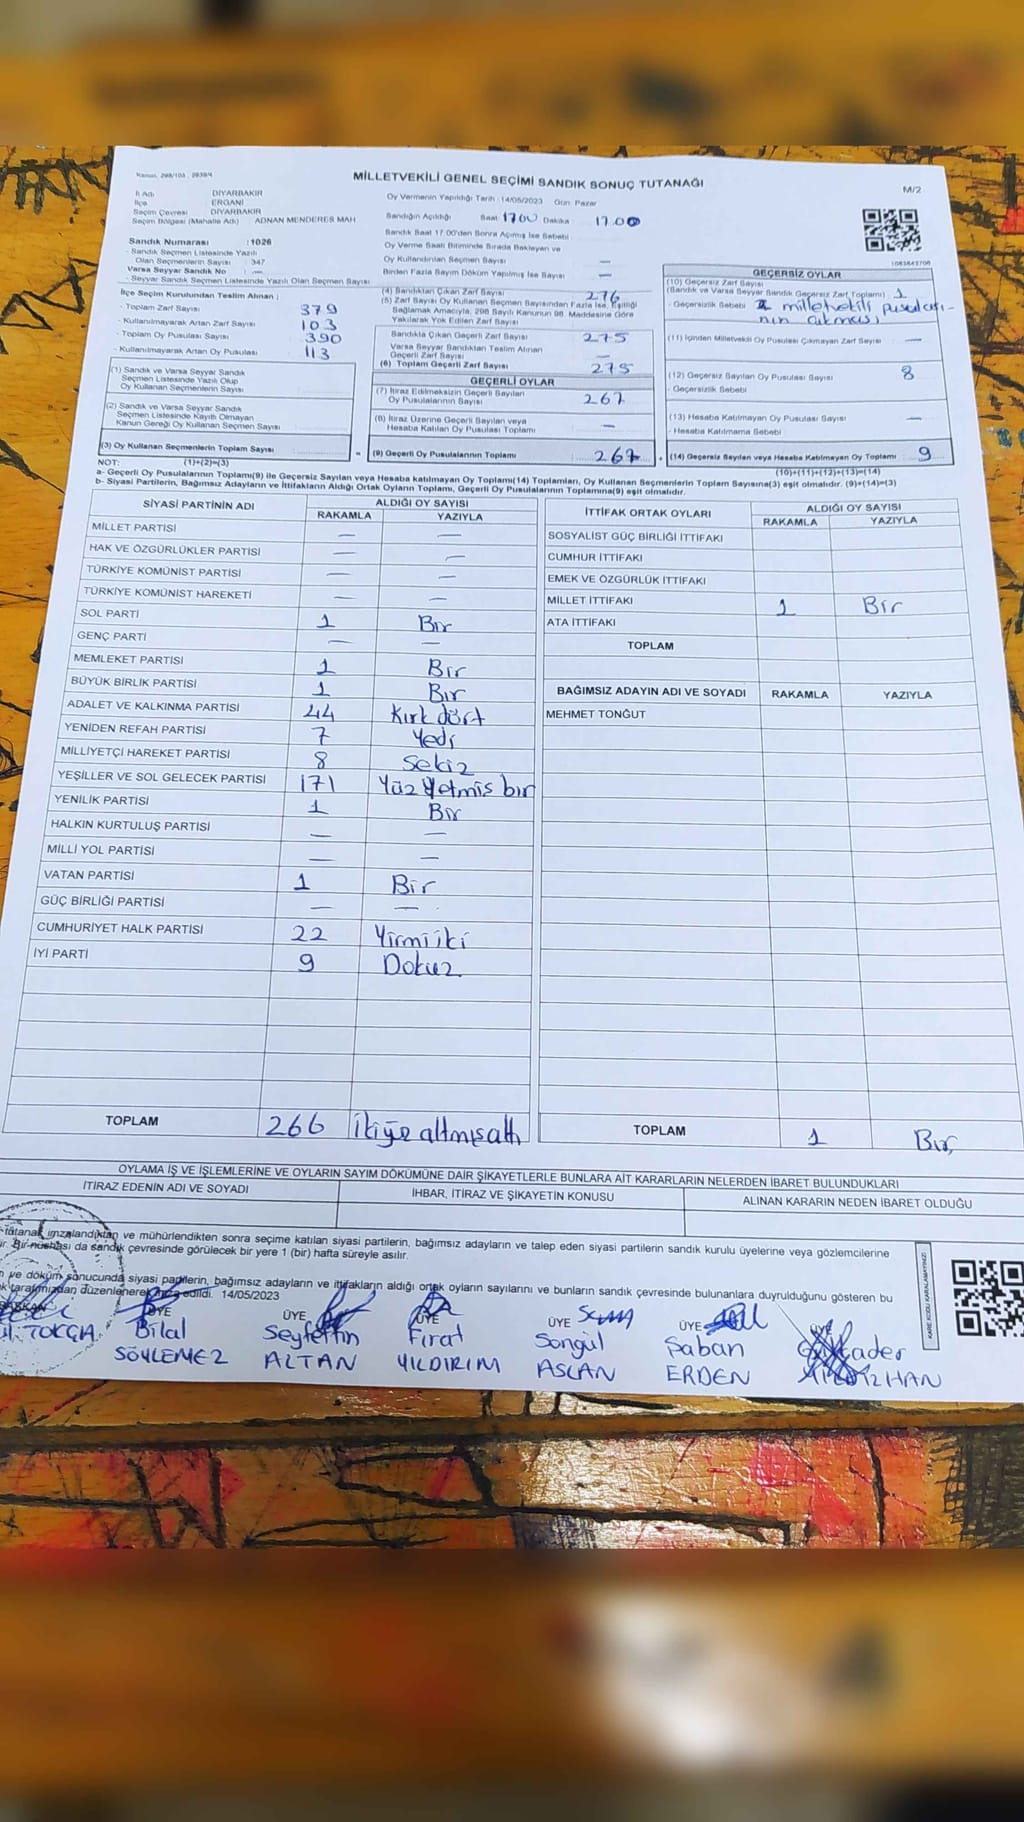 Kanun: 298/105 , 2839/4
MİLLETVEKİLİ GENEL SEÇİMİ SANDIK SONUÇ TUTANAĞI
M/2
İl Adı DİYARBAKIR
İlçe ERGANİ
Seçim Çevresi DİYARBAKIR
Seçim Bölgesi (Mahalle Adı) ADNAN MENDERES MAH
Oy Vermenin Yapıldığı Tarih : 14/05/2023 Gün: Pazar
Sandığın Açıldığı Saat: 17.00 Dakika 17.00
Sandık Saat 17.00'den Sonra Açımış İse Sebebi
Oy Verme Saati Bitiminde Sırada Bekleyen ve
Oy Kullandırılan Seçmen Sayısı —
Birden Fazla Sayım Döküm Yapılmış İse Sayısı —
Sandık Numarası : 1026
- Sandık Seçmen Listesinde Yazılı
Olan Seçmenlerin Sayısı : 347
Varsa Seyyar Sandık No : —
- Seyyar Sandık Seçmen Listesinde Yazılı Olan Seçmen Sayısı
İlçe Seçim Kurulundan Teslim Alınan ;
- Toplam Zarf Sayısı 379
- Kullanılmayarak Artan Zarf Sayısı 103
- Toplam Oy Pusulası Sayısı 390
- Kullanılmayarak Artan Oy Pusulası 113
(1) Sandık ve Varsa Seyyar Sandık
Seçmen Listesinde Yazılı Olup
Oy Kullanan Seçmenlerin Sayısı
(2) Sandık ve Varsa Seyyar Sandık
Seçmen Listesinde Kayıtlı Olmayan
Kanun Gereği Oy Kullanan Seçmen Sayısı
(3) Oy Kullanan Seçmenlerin Toplam Sayısı
(4) Sandıktan Çıkan Zarf Sayısı 276
(5) Zarf Sayısı Oy Kullanan Seçmen Sayısından Fazla İse, Eşitliği
Sağlamak Amacıyla, 298 Sayılı Kanunun 98. Maddesine Göre
Yakılarak Yok Edilen Zarf Sayısı
Sandıkta Çıkan Geçerli Zarf Sayısı 275
Varsa Seyyar Sandıktan Teslim Alınan
Geçerli Zarf Sayısı —
(6) Toplam Geçerli Zarf Sayısı 275
GEÇERLİ OYLAR
(7) İtiraz Edilmeksizin Geçerli Sayılan
Oy Pusulalarının Sayısı 267
(8) İtiraz Üzerine Geçerli Sayılan veya
Hesaba Katılan Oy Pusulası Toplamı —
(9) Geçerli Oy Pusulalarının Toplamı 267
1083643706
GEÇERSİZ OYLAR
(10) Geçersiz Zarf Sayısı
(Sandık ve Varsa Seyyar Sandık Geçersiz Zarf Toplamı) 1
- Geçersizlik Sebebi 2 milletvekili pusulası-
nın çıkması
(11) İçinden Milletvekili Oy Pusulası Çıkmayan Zarf Sayısı —
(12) Geçersiz Sayılan Oy Pusulası Sayısı 8
- Geçersizlik Sebebi
(13) Hesaba Katılmayan Oy Pusulası Sayısı —
- Hesaba Katılmama Sebebi
(14) Geçersiz Sayılan veya Hesaba Katılmayan Oy Toplamı 9
NOT: (1)+(2)=(3)
(10)+(11)+(12)+(13)=(14)
a- Geçerli Oy Pusulalarının Toplamı(9) ile Geçersiz Sayılan veya Hesaba katılmayan Oy Toplamı(14) Toplamları, Oy Kullanan Seçmenlerin Toplam Sayısına(3) eşit olmalıdır. (9)+(14)=(3)
b- Siyasi Partilerin, Bağımsız Adayların ve İttifakların Aldığı Ortak Oyların Toplamı, Geçerli Oy Pusulalarının Toplamına(9) eşit olmalıdır.
SİYASİ PARTİNİN ADI ALDIĞI OY SAYISI
RAKAMLA YAZIYLA
MİLLET PARTİSİ — —
HAK VE ÖZGÜRLÜKLER PARTİSİ — —
TÜRKİYE KOMÜNİST PARTİSİ — —
TÜRKİYE KOMÜNİST HAREKETİ — —
SOL PARTİ 1 Bir
GENÇ PARTİ — —
MEMLEKET PARTİSİ 1 Bir
BÜYÜK BİRLİK PARTİSİ 1 Bir
ADALET VE KALKINMA PARTİSİ 44 Kırk dört
YENİDEN REFAH PARTİSİ 7 Yedi
MİLLİYETÇİ HAREKET PARTİSİ 8 Sekiz
YEŞİLLER VE SOL GELECEK PARTİSİ 171 Yüz Yetmiş bir
YENİLİK PARTİSİ 1 Bir
HALKIN KURTULUŞ PARTİSİ — —
MİLLİ YOL PARTİSİ — —
VATAN PARTİSİ 1 Bir
GÜÇ BİRLİĞİ PARTİSİ — —
CUMHURİYET HALK PARTİSİ 22 Yirmi iki
İYİ PARTİ 9 Dokuz
TOPLAM 266 İkiyüz altmışaltı
İTTİFAK ORTAK OYLARI ALDIĞI OY SAYISI
RAKAMLA YAZIYLA
SOSYALİST GÜÇ BİRLİĞİ İTTİFAKI
CUMHUR İTTİFAKI
EMEK VE ÖZGÜRLÜK İTTİFAKI
MİLLET İTTİFAKI 1 Bir
ATA İTTİFAKI
TOPLAM
BAĞIMSIZ ADAYIN ADI VE SOYADI RAKAMLA YAZIYLA
MEHMET TONĞUT
TOPLAM 1 Bir
OYLAMA İŞ VE İŞLEMLERİNE VE OYLARIN SAYIM DÖKÜMÜNE DAİR ŞİKAYETLERLE BUNLARA AİT KARARLARIN NELERDEN İBARET BULUNDUKLARI
İTİRAZ EDENİN ADI VE SOYADI İHBAR, İTİRAZ VE ŞİKAYETİN KONUSU ALINAN KARARIN NEDEN İBARET OLDUĞU
tutanak imzalandıktan ve mühürlendikten sonra seçime katılan siyasi partilerin, bağımsız adayların ve talep eden siyasi partilerin sandık kurulu üyelerine veya gözlemcilerine
Bir nüshası da sandık çevresinde görülecek bir yere 1 (bir) hafta süreyle asılır.
ve döküm sonucunda siyasi partilerin, bağımsız adayların ve ittifakların aldığı ortak oyların sayılarını ve bunların sandık çevresinde bulunanlara duyrulduğunu gösteren bu
tarafımızdan düzenlenerek imza edildi. 14/05/2023
KARE KODU KARALAMAYINIZ!
BAŞKAN ÜYE ÜYE ÜYE ÜYE ÜYE ÜYE
Bilal Seyfettin Fırat Songül Şaban
SÖYLEMEZ ALTAN YILDIRIM ASLAN ERDEN